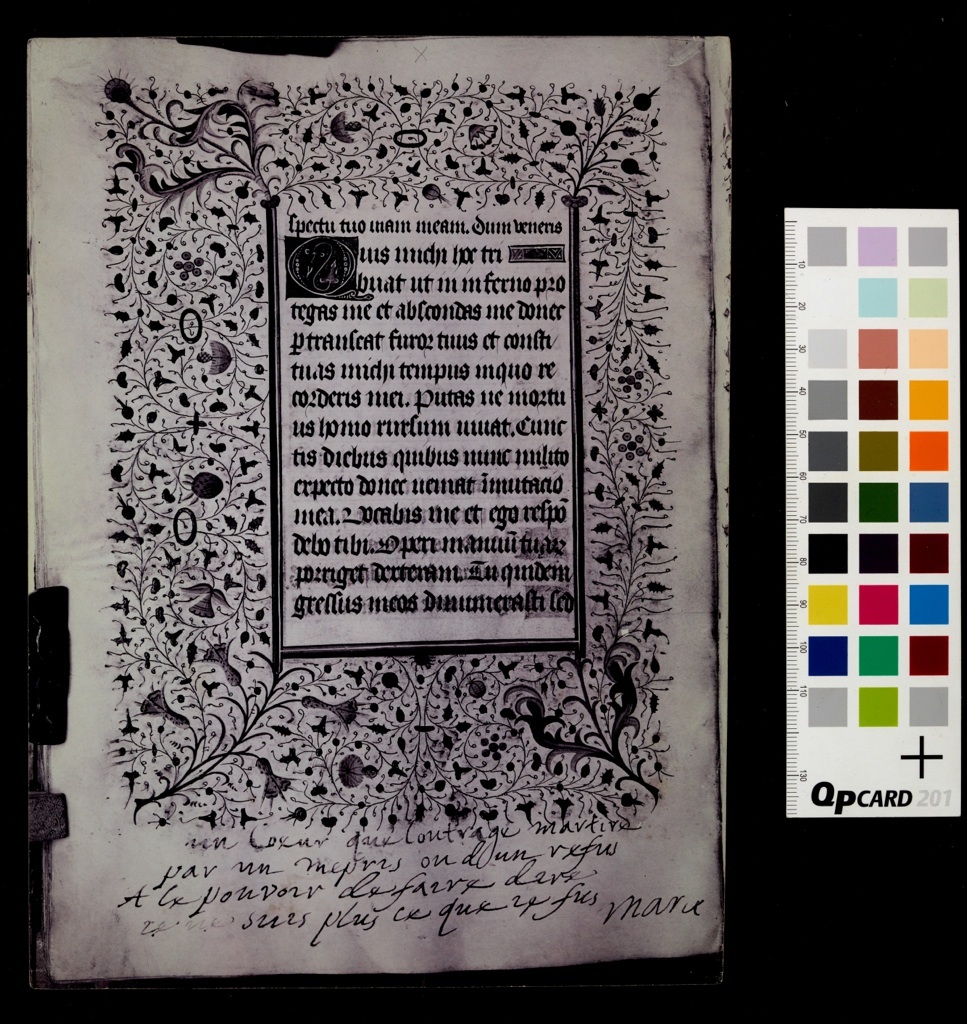 spectu tuo uiam meam. Dum veneris
Quis michi hoc tri
buat ut in inferno pro
tegas me et abscondas me donec
ꝑtranseat furor tuus et consti
tuas michi tempus in quo re
corderis mei. Putas ne mortu
us homo rursum uiuat. Cunc
tis diebus quibus nunc milito
expecto donec ueniat īmutacio
mea. Uocabis me et ego respō
debo tibi. Operi manuū tuar
porriget dexteram. Tu quidem
gressus meos dinumerasti sed
un Coeur que loutrage martire
par un mepris ou d un refus
A le pouvoir de faire dire
ie ne suis plus ce que ie fus Marie
10
20
30
40
50
60
70
80
90
100
110
130
QPCARD 201